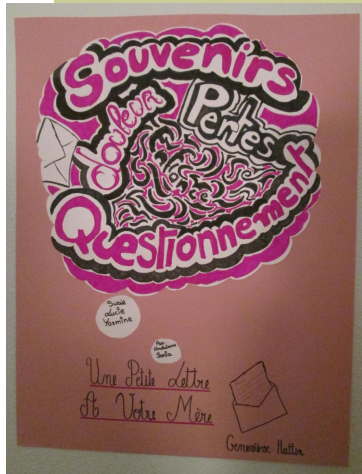 Souvenirs
douleur
Pertes
Questionnement
Susie
Lucie
Yasmine
Une Petite Lettre
A Votre Mère